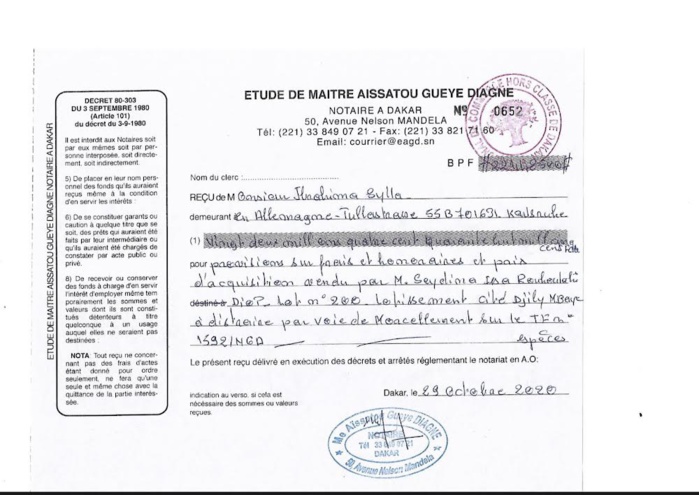 ETUDE DE MAITRE AISSATOU GUEYE DIAGNE NOTAIRE A DAKAR
DECRET 80-303
DU 3 SEPTEMBRE 1980
(Article 101)
du décret du 3-9-1980
Il est interdit aux Notaires soit
par eux mêmes soit par per-
sonne interposée, soit directe-
ment, soit indirectement.
5) De placer en leur nom person-
nel des fonds qu'ils auraient
reçus même à la condition
d'en servir les intérêts :
6) De se constituer garants ou
caution à quelque titre que se
soit, des prêts qui auraient été
faits par leur intermédiaire ou
qu'ils auraient été chargés de
constater par acte public ou
privé.
8) De recevoir ou conserver
des fonds à charge d'en servir
l'intérêt d'employer même tem
porairement les sommes et
valeurs dont ils sont consti-
tués détenteurs à titre
quelconque à un usage
auquel elles ne seraient pas
destinées :
NOTA: Tout reçu ne concer-
nant pas des frais d'actes
étant donné pour ordre
seulement, ne fera qu'une
seule et même chose avec la
quittance de la partie intéres-
sée.
ETUDE DE MAITRE AISSATOU GUEYE DIAGNE
NOTAIRE A DAKAR
50, Avenue Nelson MANDELA
Tél: (221) 33 849 07 21 - Fax: (221) 33 821 71 60
Email: courrier@eagd.sn
Nº 0652
HORS CLASSE DE DAKAR
B P F
Nom du clerc :
REÇU de M Monsieur Ibrahima Sylla
demeurant en Allemagne - Tullastrasse 55 B 70169, Karlsruhe
(1) Vingt deux millions quatre cent quarante huit mille cent
pour provisions sur frais et honoraires et prix
d'acquisition vendu par M. Seydina Issa
destiné à Diop. Lot nº 200 Lotissement cité Djily Mbaye
à distraire par voie de Morcellement sur le TF nº
1592/NGA espèces
Le présent reçu délivré en exécution des décrets et arrêtés réglementant le notariat en A.O:
indication au verso, si cela est
nécessaire des sommes ou valeurs
reçues.
Dakar, le 29 Octobre 2020
Me Aïssatou Gueye DIAGNE
NOTAIRE
Tél 33 849 07 21
DAKAR
50 Avenue Nelson Mandela